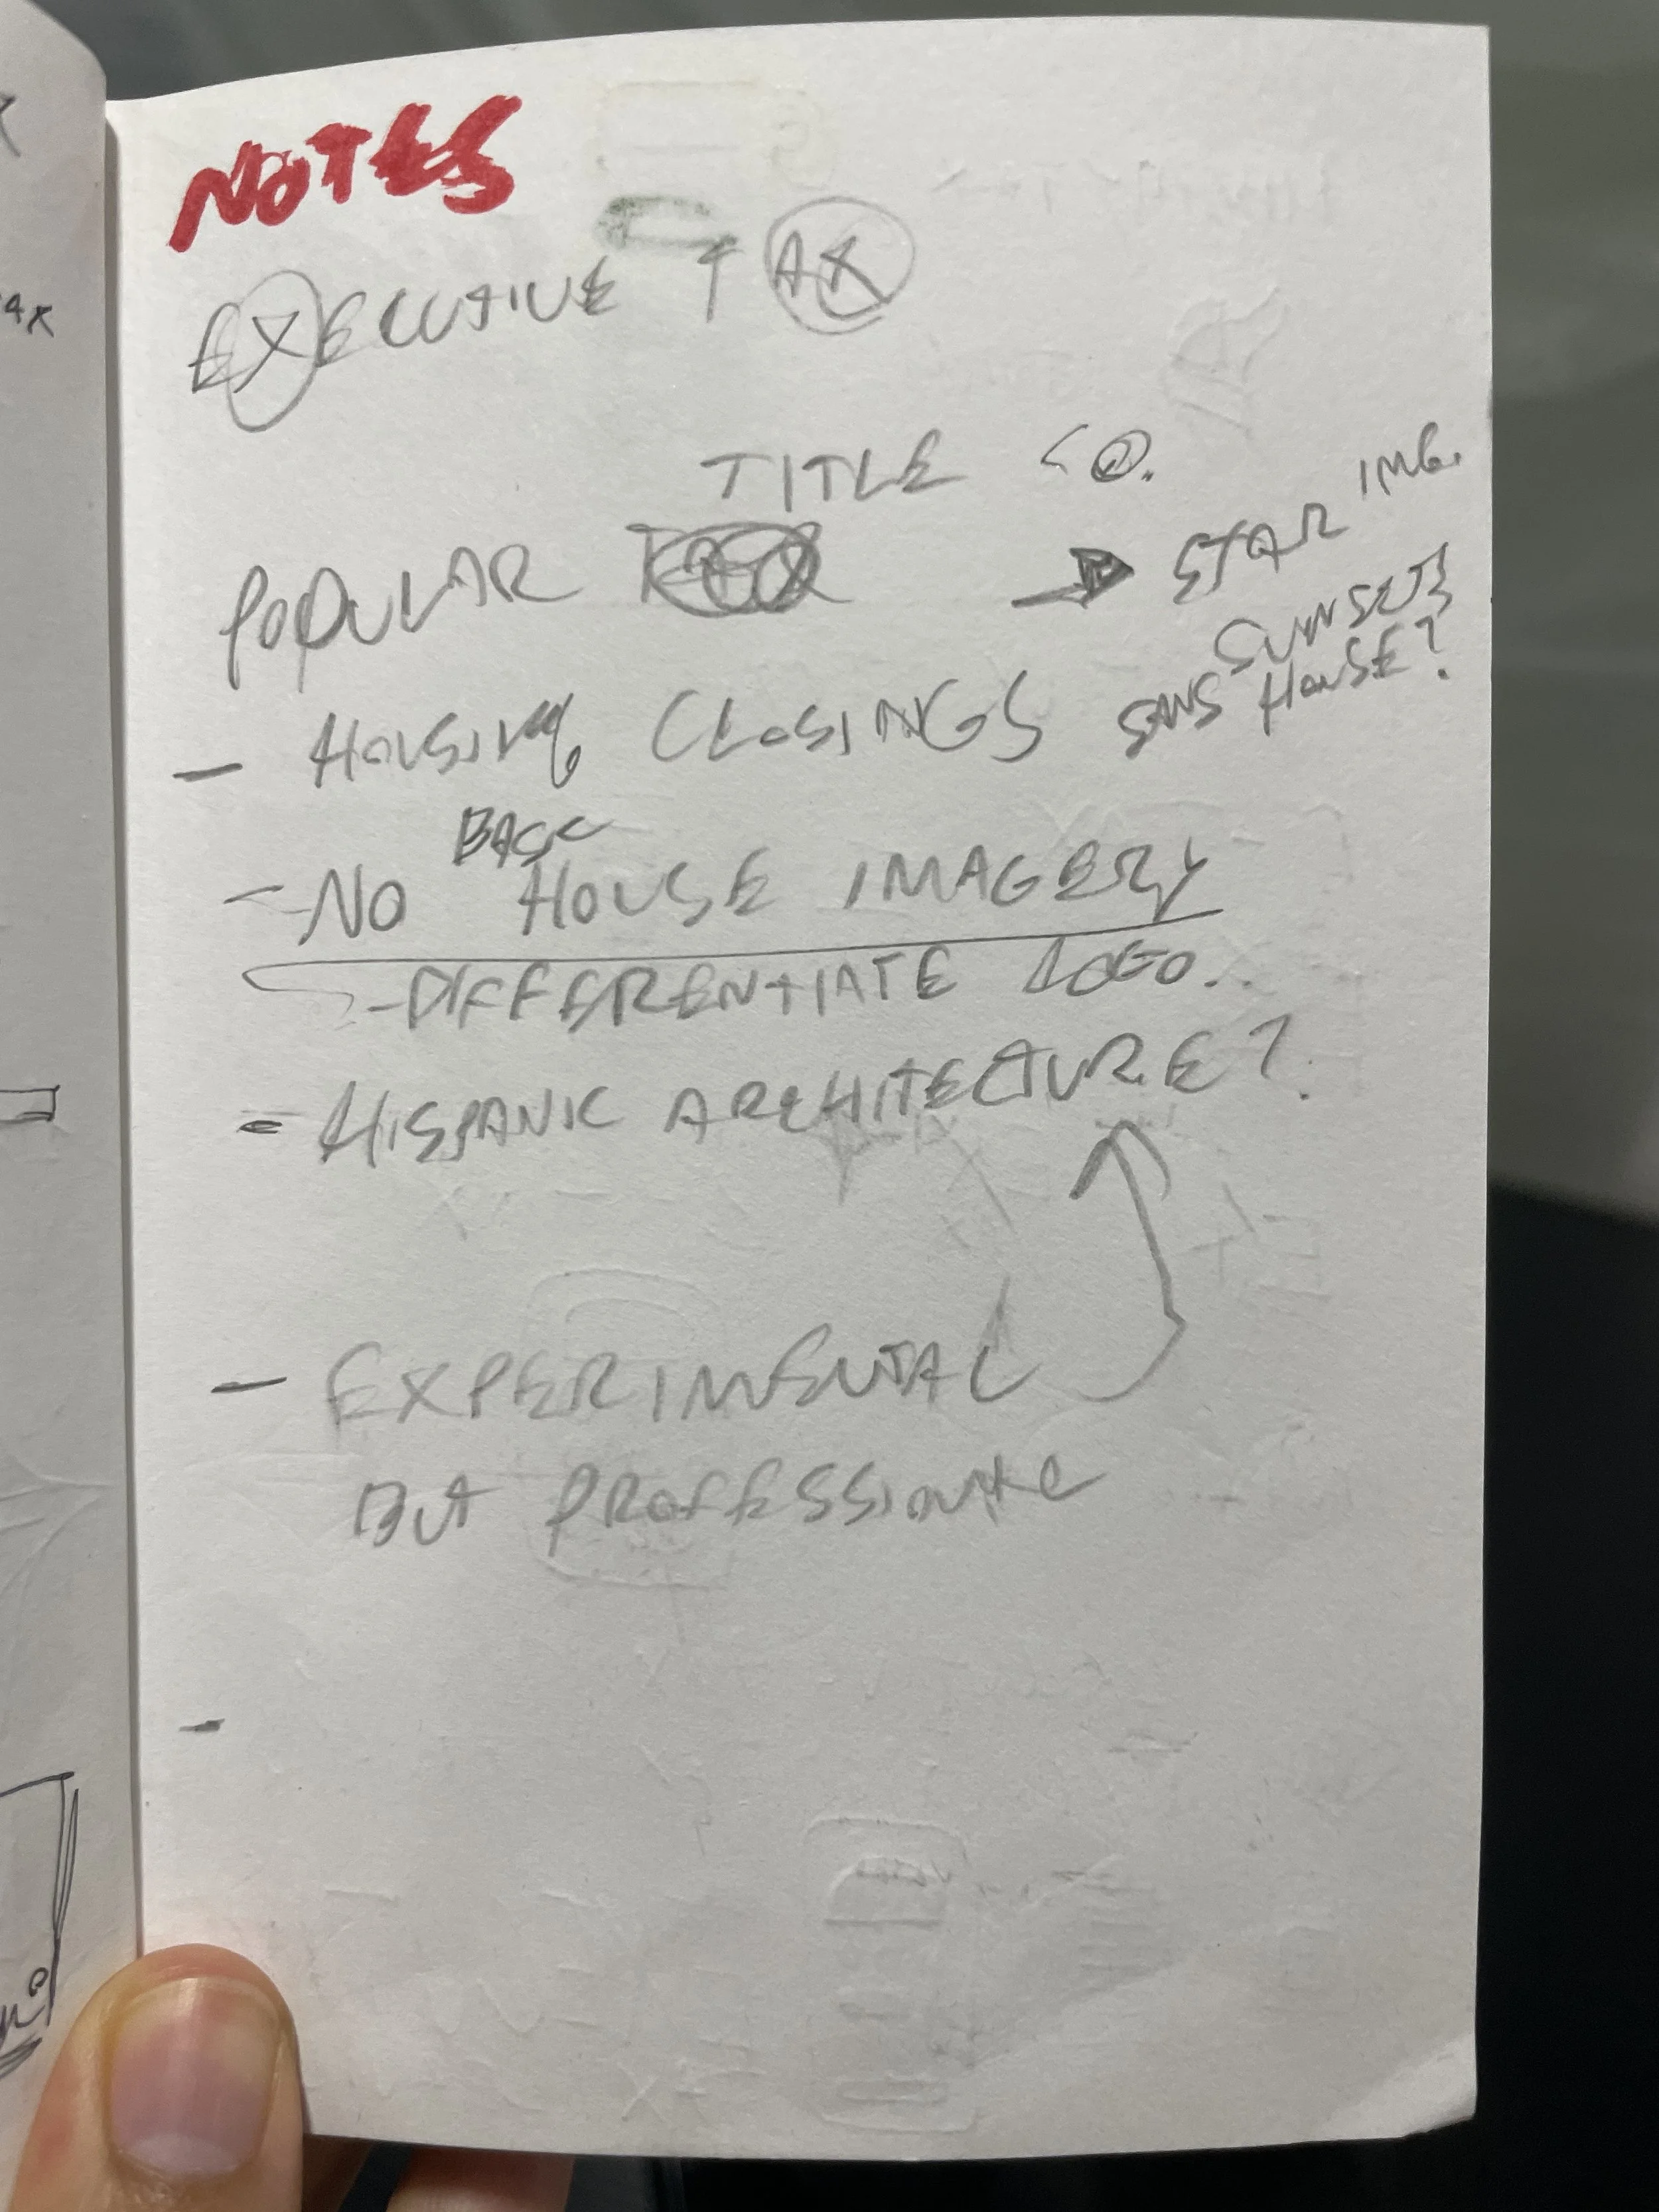 NOTES
EXECUTIVE TAX
TITLE CO.
POPULAR
→ STAR IMG.
SUNSETS
SANS HOUSE?
- HOUSING CLOSINGS
BASIC
- NO HOUSE IMAGERY
- DIFFERENTIATE LOGO..
= HISPANIC ARCHITECTURE?
- EXPERIMENTAL
BUT PROFESSIONAL
-